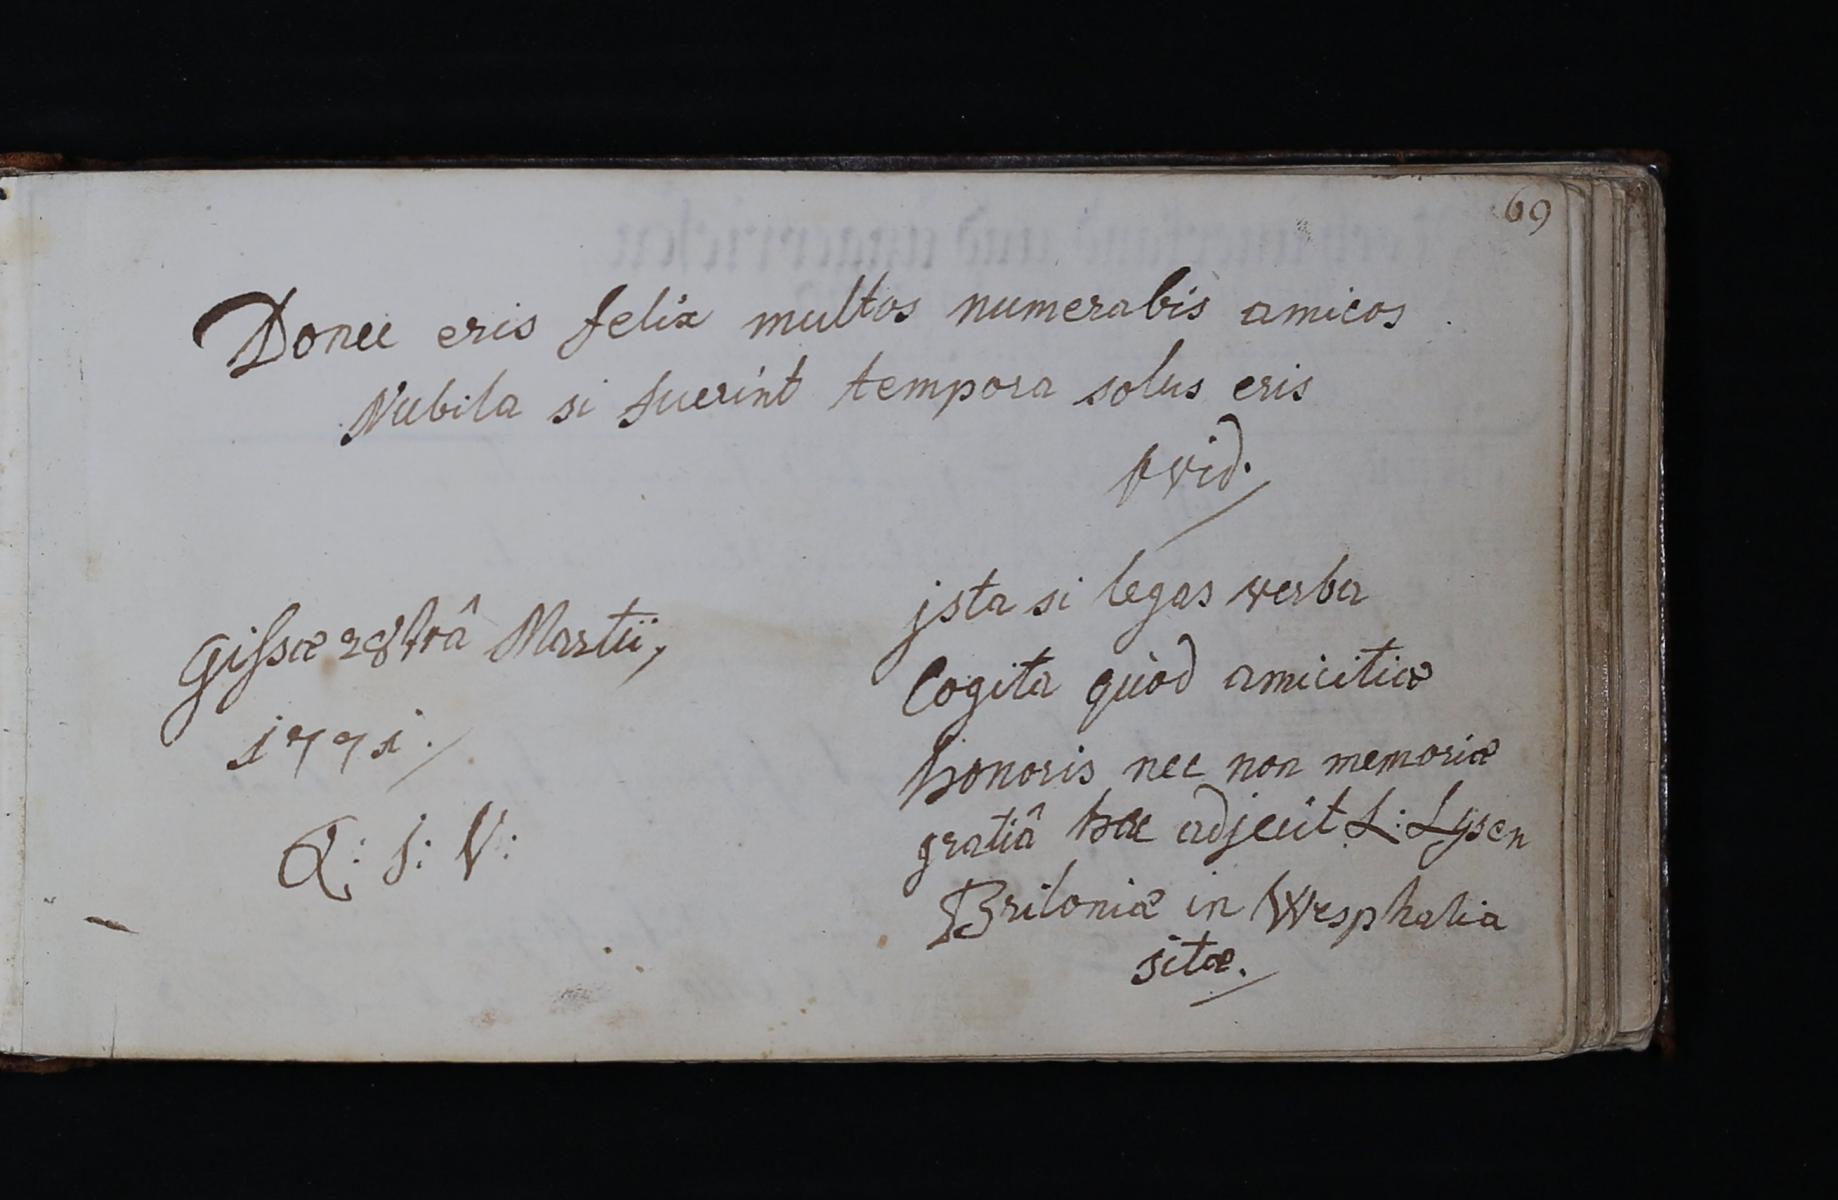 69
Donec eris felix multos numerabis amicos
Nubila si fuerint tempora solus eris
Ovid.
Gissae 28 Martii,
1771.
Q: S: V:
jsta si legas verba
Cogita quòd amicitiae
honoris nec non memoriae
gratiâ haec adjecit L: Lysen
Briloniae in Wesphalia
sitae.